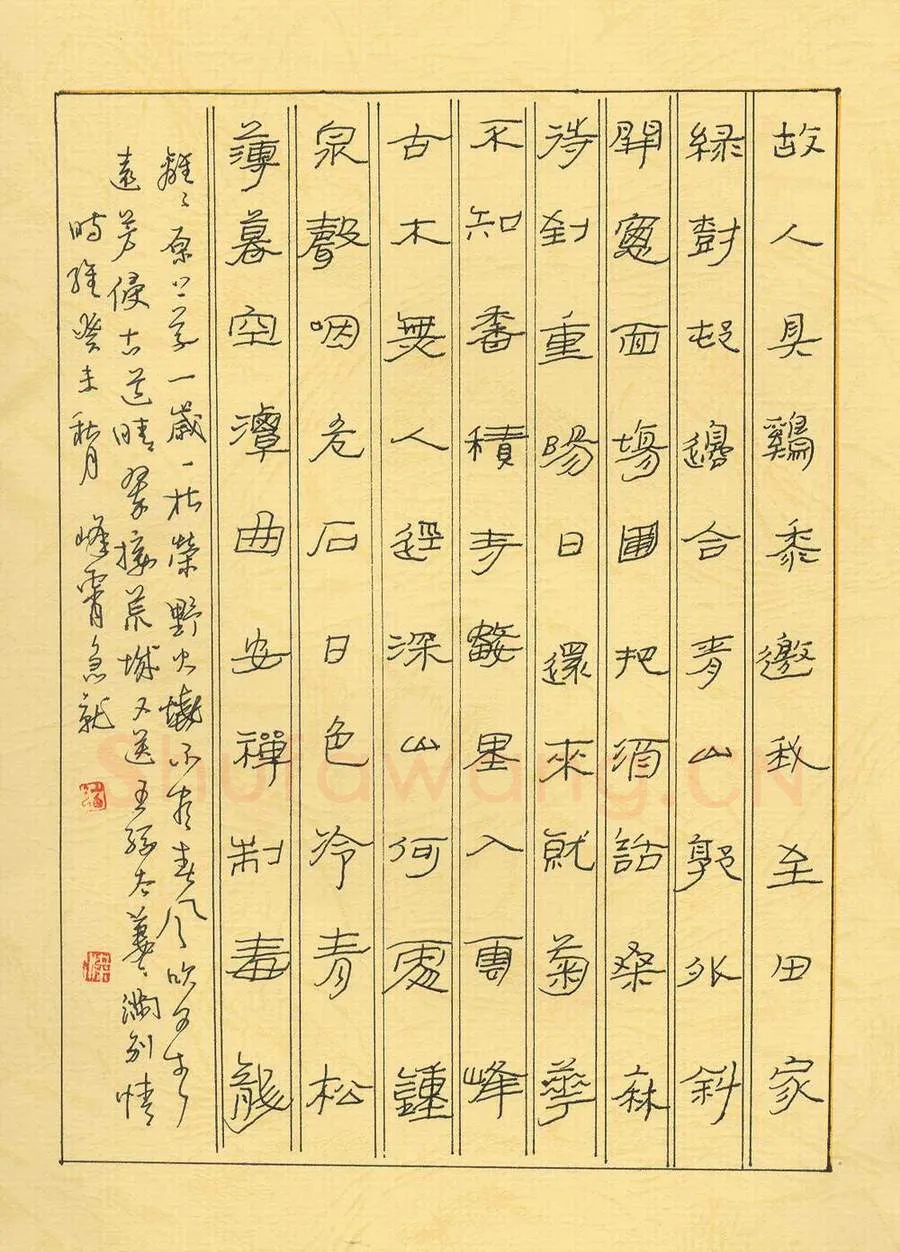 故人具鷄黍邀我至田家
綠樹邨邊合青山郭外斜
開窗面場圃把酒話桑麻
待到重陽日還來就菊華
不知香積寺數里入雲峰
古木無人徑深山何處鐘
泉聲咽危石日色冷青松
薄暮空潭曲安禪制毒龍
離離原上草一歲一枯榮野火燒不盡春風吹又生
遠芳侵古道晴翠接荒城又送王孫去萋萋滿別情
時維癸未秋月 峰霄急就
Shufawang.cn